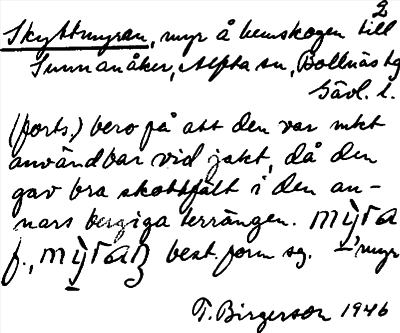 2
Skyttmyran, myr å hemskogen till
Sunnanåker, Alfta sn, Bollnäs tg
Gävl. l.
(forts.) bero på att den var mkt
användbar vid jakt, då den
gav bra skottfält i den an-
nars bergiga terrängen.
f., best. form sg. 'myr
T. Birgerson 1946